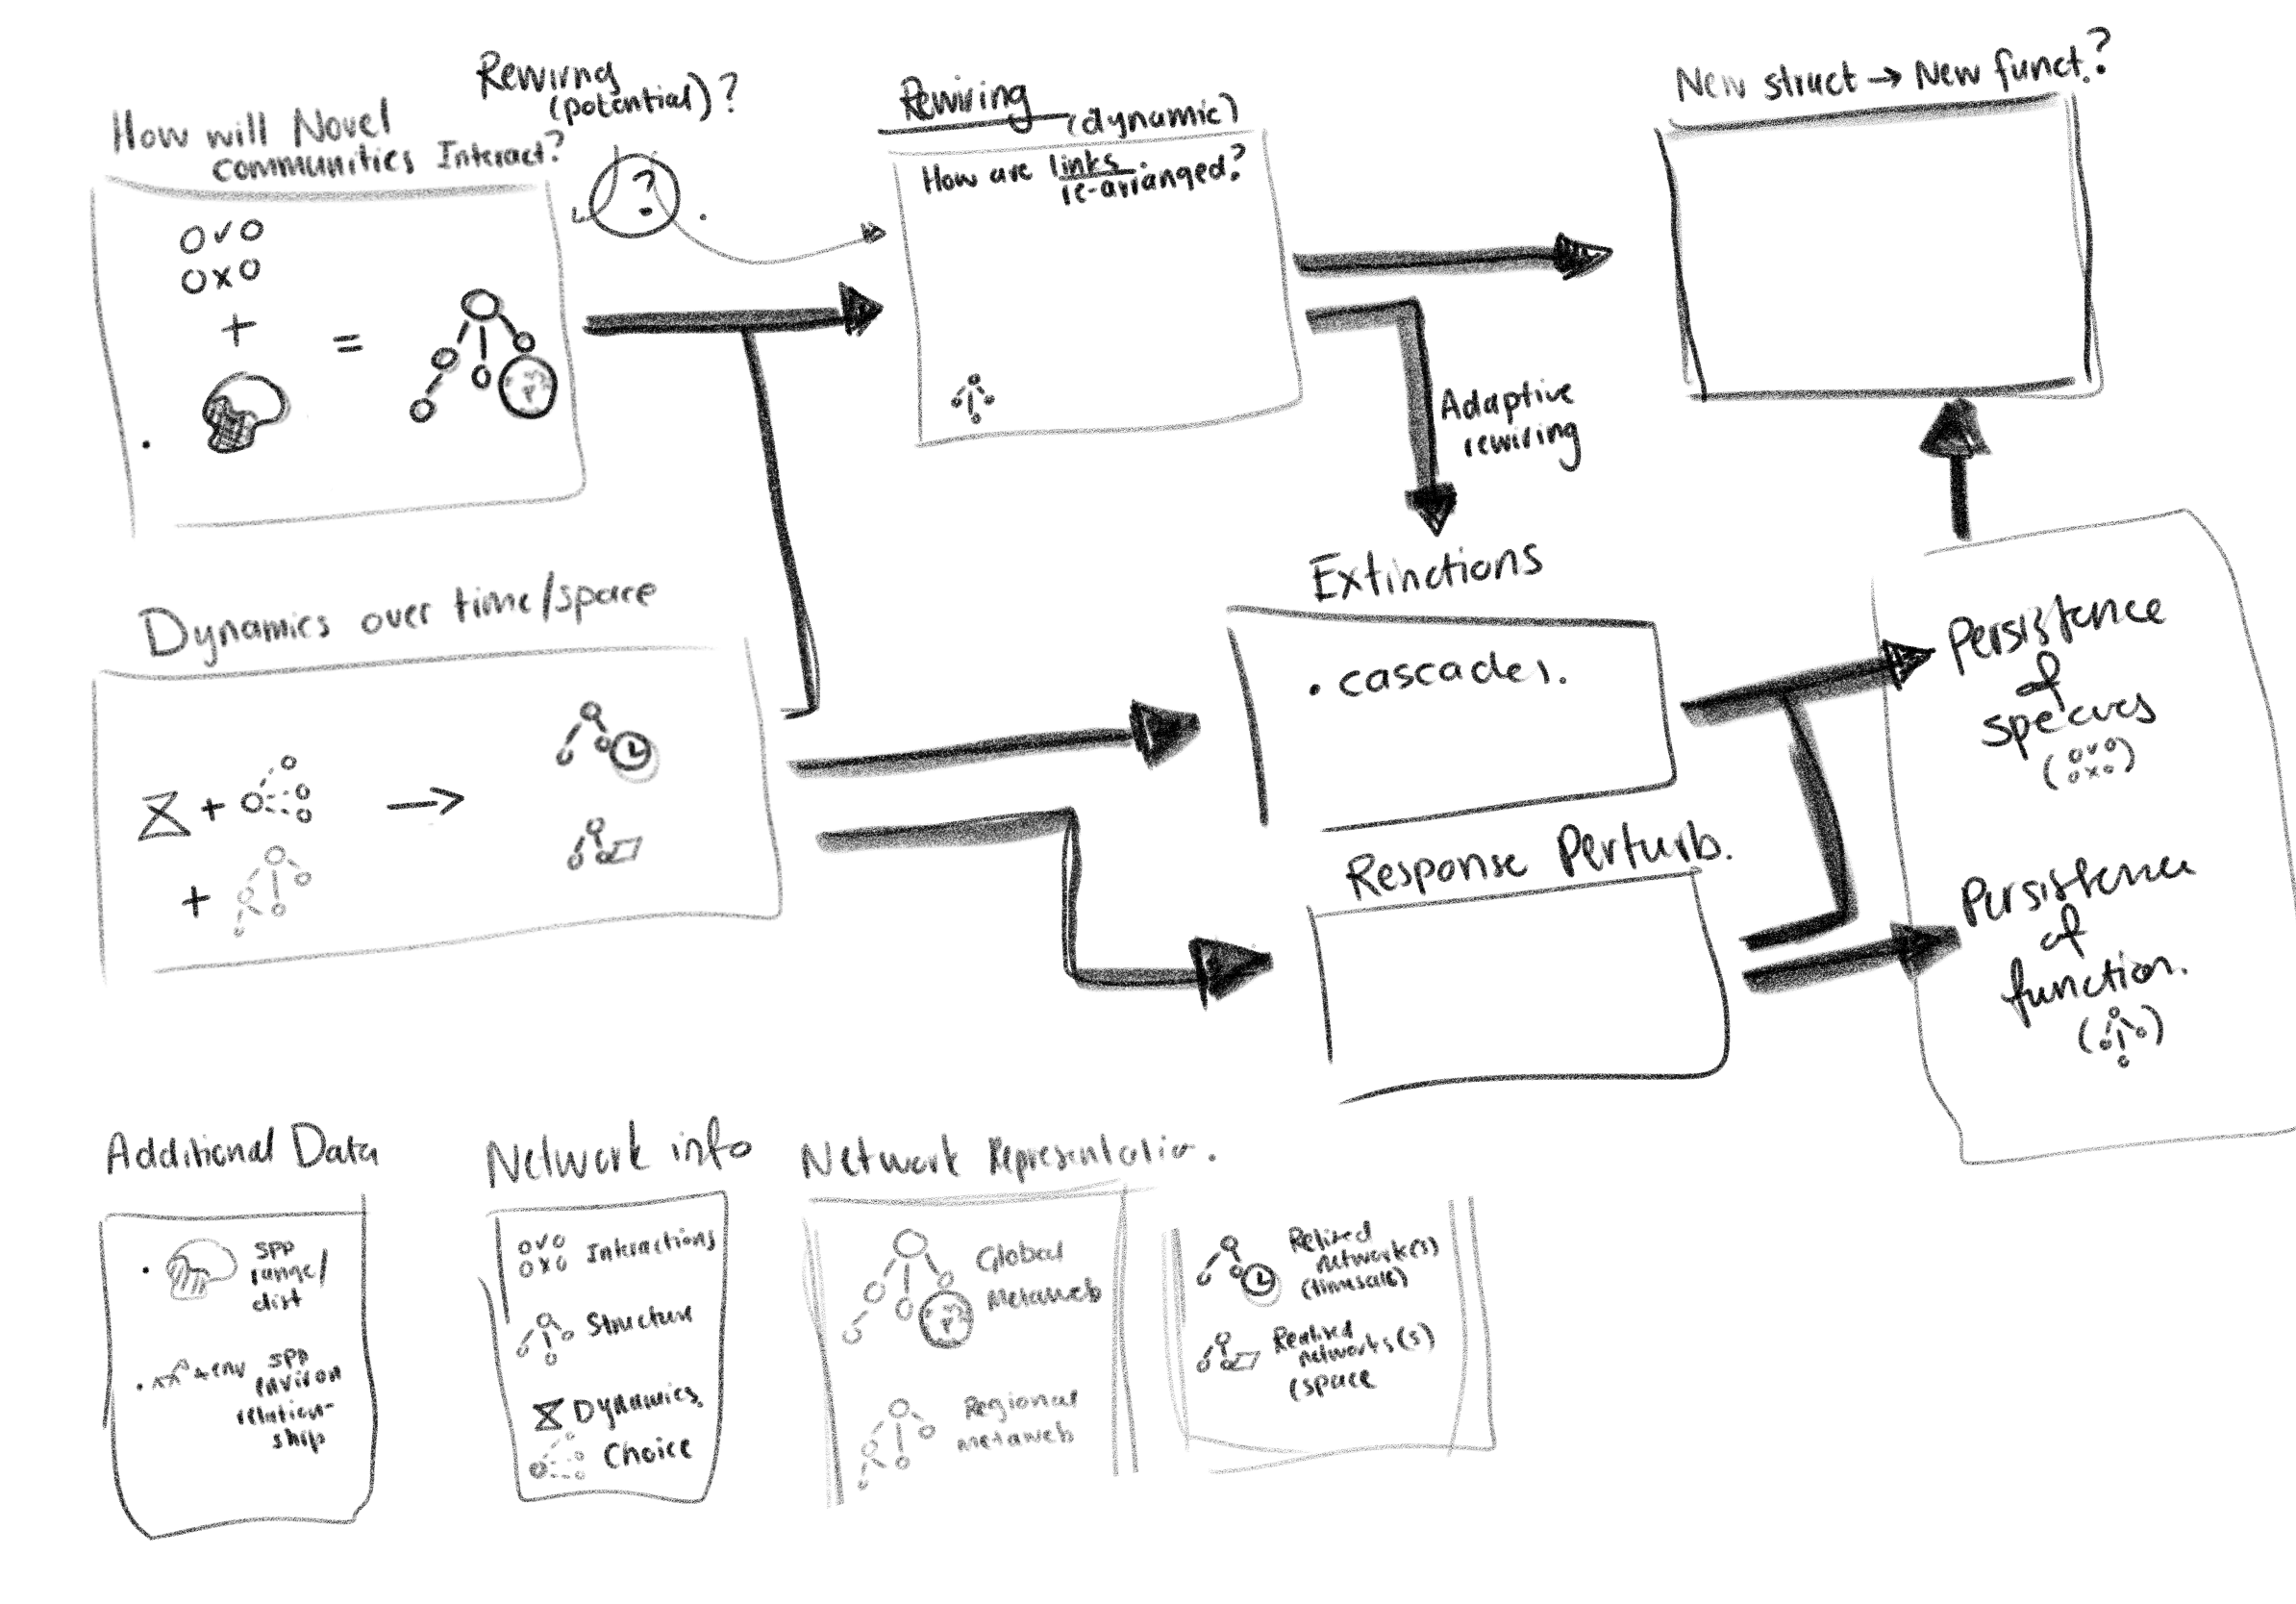 How will Novel
communities Interact?
Rewirng
(potential)?
?
Rewiring
(dynamic)
How are links
re-arranged?
New struct → New funct.?
+
=
Adaptive
rewiring
Dynamics over time/space
+
→
+
Extinctions
• cascades.
Response Perturb.
Persistence
of
species
Persistence
of
function.
Additional Data
• spp
range/
dist
• + env spp
environ
relation-
ship
Network info
Interactions
Structure
Dynamics
Choice
Network Representation.
Global
Metaweb
Regional
metaweb
Relised
network(s)
(timescale)
Realised
networks(s)
(space